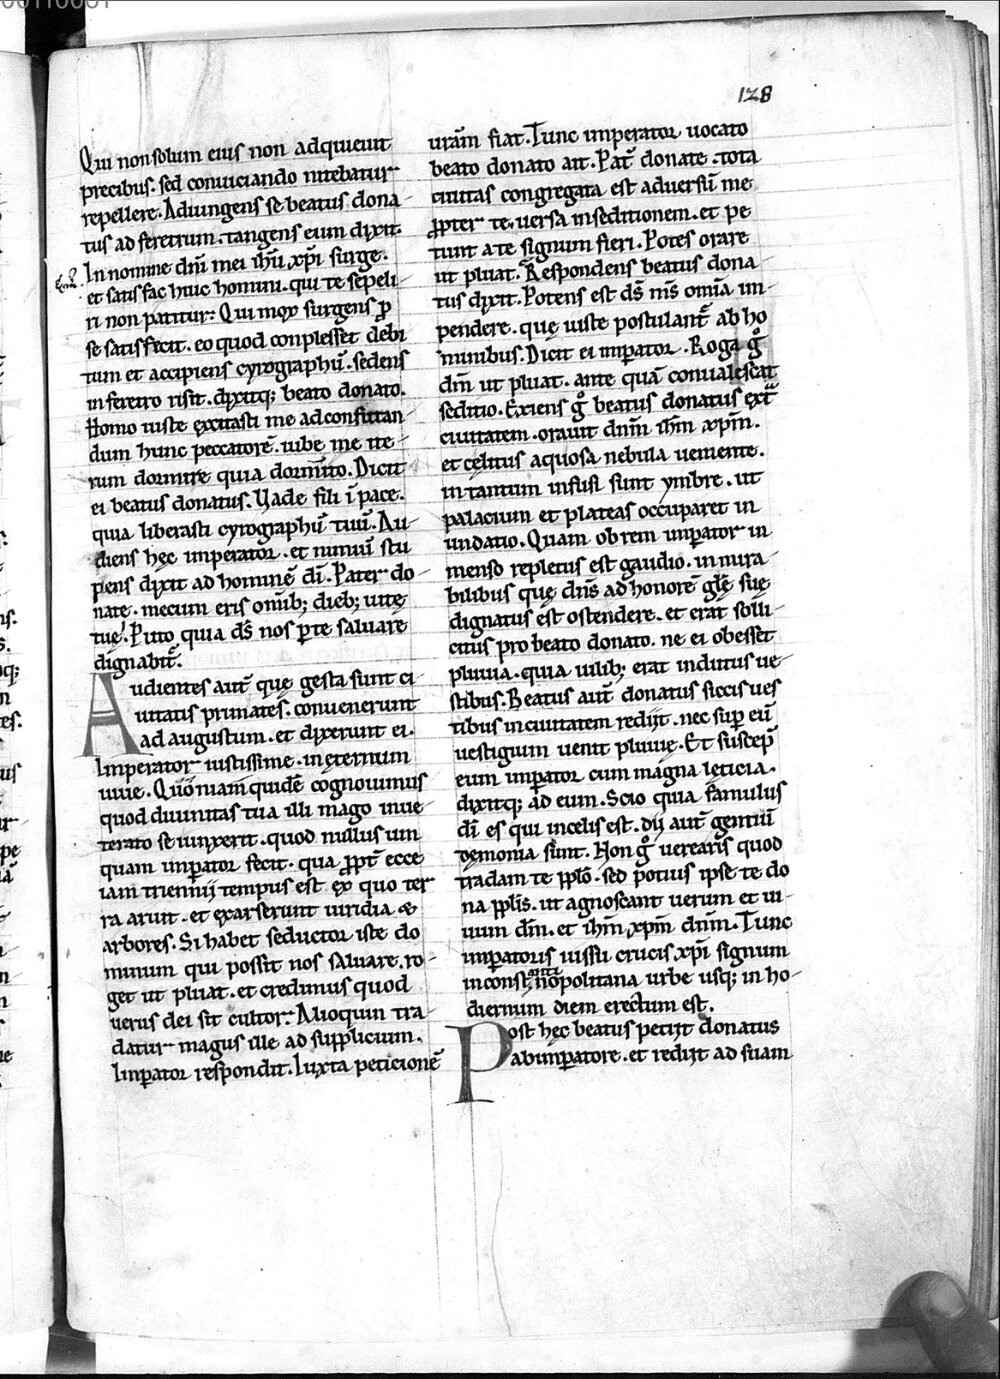 128
Qui non solum eius non adquieuit
precibus. sed conuiciando nitebatur
repellere. Adiungens se beatus dona-
tus ad feretrum. tangens eum dixit.
In nomine dñi mei ihũ xp̃i surge.
et satisfac huic homini. qui te sepeli-
ri non patitur: Qui mox surgens ꝓ
se satisfecit. eo quod conplesset debi
tum et accipiens cyrographũ. sedens
in feretro risit. dixitq; beato donato.
Homo iuste excitasti me ad confitan-
dum hunc peccatorẽ. iube me ite-
rum dormire quia dormito. Dicit
ei beatus donatus. Vade fili ĩ pace.
quia liberasti cyrographũ tuũ. Au-
diens hęc imperator. et nimiũ stu
pens dixit ad hominẽ dĩ. Pater do-
nate. mecum eris omib; dieb; uitę
tuę. Puto quia d̃s nos p̱ te saluare
dignabit̃.
Audientes aut̃ quę gesta sunt ci-
uitatis primates. conuenerunt
ad augustum. et dixerunt ei.
Imperator iustissime. in ęternum
uiue. Quõniam quidẽ cognouimus
quod diuinitas tua illi mago inue-
terato se iunxerit. quod nullus um
quam imp̱ator fecit. qua ꝓpt̃ ecce
iam triennij tempus est ex quo ter
ra aruit. et exarserunt uiridia &
arbores. Si habet seductor iste do
minum qui possit nos saluare. ro-
get ut pluat. et credimus quod
uerus dei sit cultor: Alioquin tra-
datur magus ille ad supplicium.
Imp̱ator respondit. Iuxta peticionẽ
urãm fiat. Tunc imperator uocato
beato donato ait. Pat̃ donate. tota
ciuitas congregata est aduersũ me
ꝓpter te. uersa in seditionem. et pe
tunt a te signum fieri. Potes orare
ut pluat. Respondens beatus dona-
tus dixit. Potens est d̃s m̃s omĩa im-
pendere. quę iuste postulant̃ ab ho
minibus. Dicit ei imp̱ator. Roga gͦ
dñi ut pluat. ante quã conualescat
seditio. Exiens gͦ beatus donatus ext̃
ciuitatem. orauit dñm ihm̃ xp̃m.
et celitus aquosa nebula uemente.
in tantum infusi sunt ymbre. ut
palacium et plateas occuparet in
undatio. Quam ob rem imp̱ator in
menso repletus est gaudio. in mira-
bilibus quę dñs ad honorẽ gl̃ę suę
dignatus est ostendere. et erat solli-
citus pro beato donato. ne ei obesset
pluuia. quia uilib; erat indutus ue-
stibus. Beatus aut̃ donatus siccis ues
tibus in ciuitatem redijt. nec sup̱ eũ
uestigium uenit pluuię. Et suscep̃
eum imp̱ator cum magna leticia.
dixitq; ad eum. Scio quia famulus
dĩ es qui in celis est. dij aut̃ gentiũ
demonia sunt. Non gͦ uerearis quod
tradam te pp̃lo. sed potius ipse te do
na pp̃lis. ut agnoscant uerum et ui-
uum dm̃. et ihm̃ xp̃m dñm. Tunc
imp̱atoris iussu crucis xp̃i signum
in constantinopolitana urbe usq; in ho-
diernum diem erectum est.
Post hęc beatus petijt donatus
ab imp̱atore. et redijt ad suam